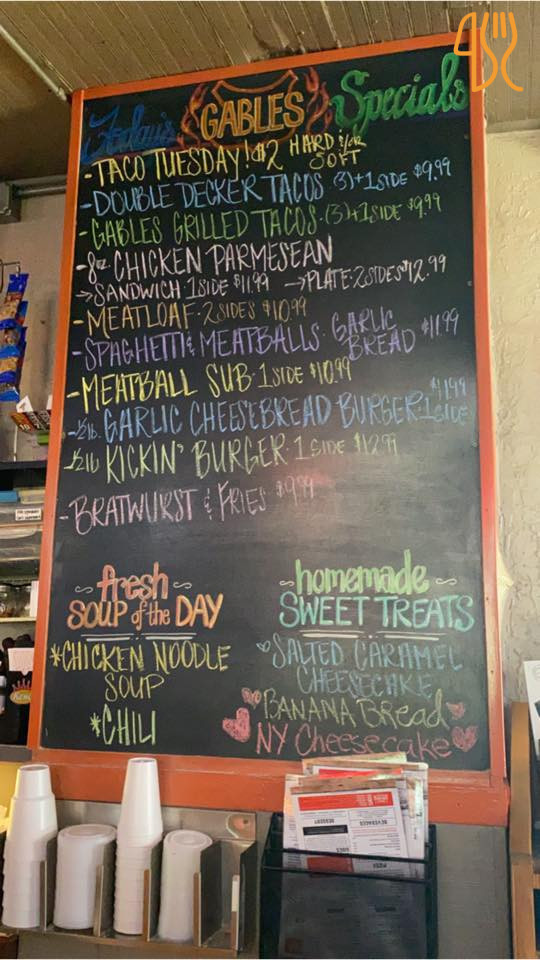 Today's GABLES Specials
-TACO TUESDAY! $2 HARD &/OR SOFT
-DOUBLE DECKER TACOS (3)+1SIDE $9.99
-GABLES GRILLED TACOS·(3)+1SIDE $9.99
-8oz CHICKEN PARMESEAN
→SANDWICH·1SIDE $11.99 →PLATE:2SIDES $12.99
-MEATLOAF·2SIDES $10.99
-SPAGHETTI & MEATBALLS· GARLIC BREAD $11.99
-MEATBALL SUB·1SIDE $10.99
-½lb. GARLIC CHEESEBREAD BURGER·1SIDE $11.99
-½lb KICKIN' BURGER·1 SIDE $12.99
-BRATWURST & FRIES $9.99
~fresh~
SOUP of the DAY
*CHICKEN NOODLE
SOUP
*CHILI
~homemade~
SWEET TREATS
♡SALTED CARAMEL
CHEESECAKE
♡BANANA BREAD♡
♡NY Cheesecake♡
BEVERAGES
DESSERT